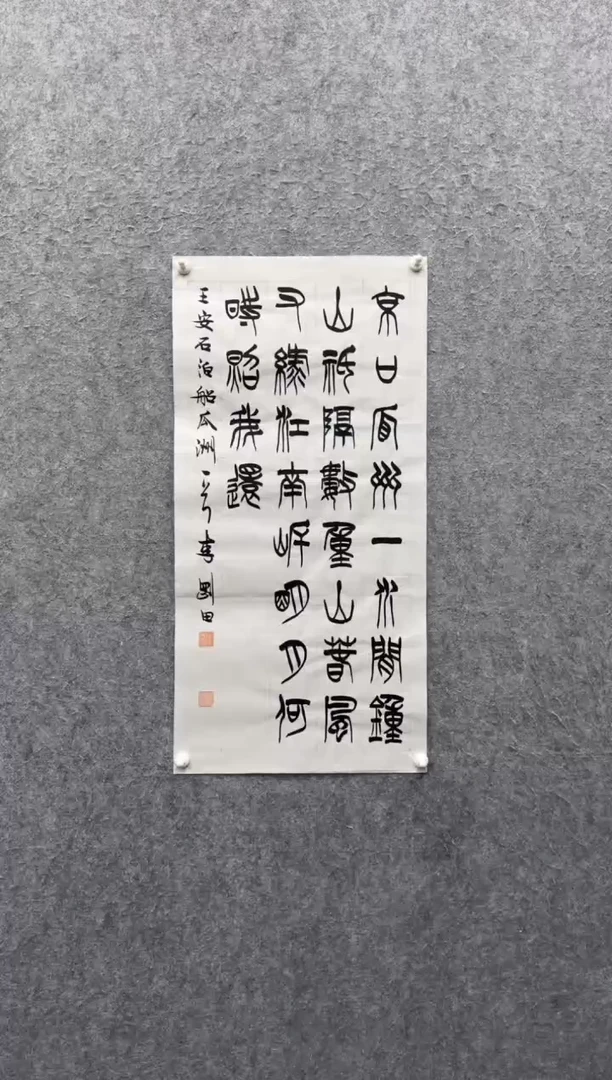 京口瓜州一水間鐘
山祇隔數重山春風
又綠江南岸明月何
時照我還
王安石泊船瓜洲一首李剛田